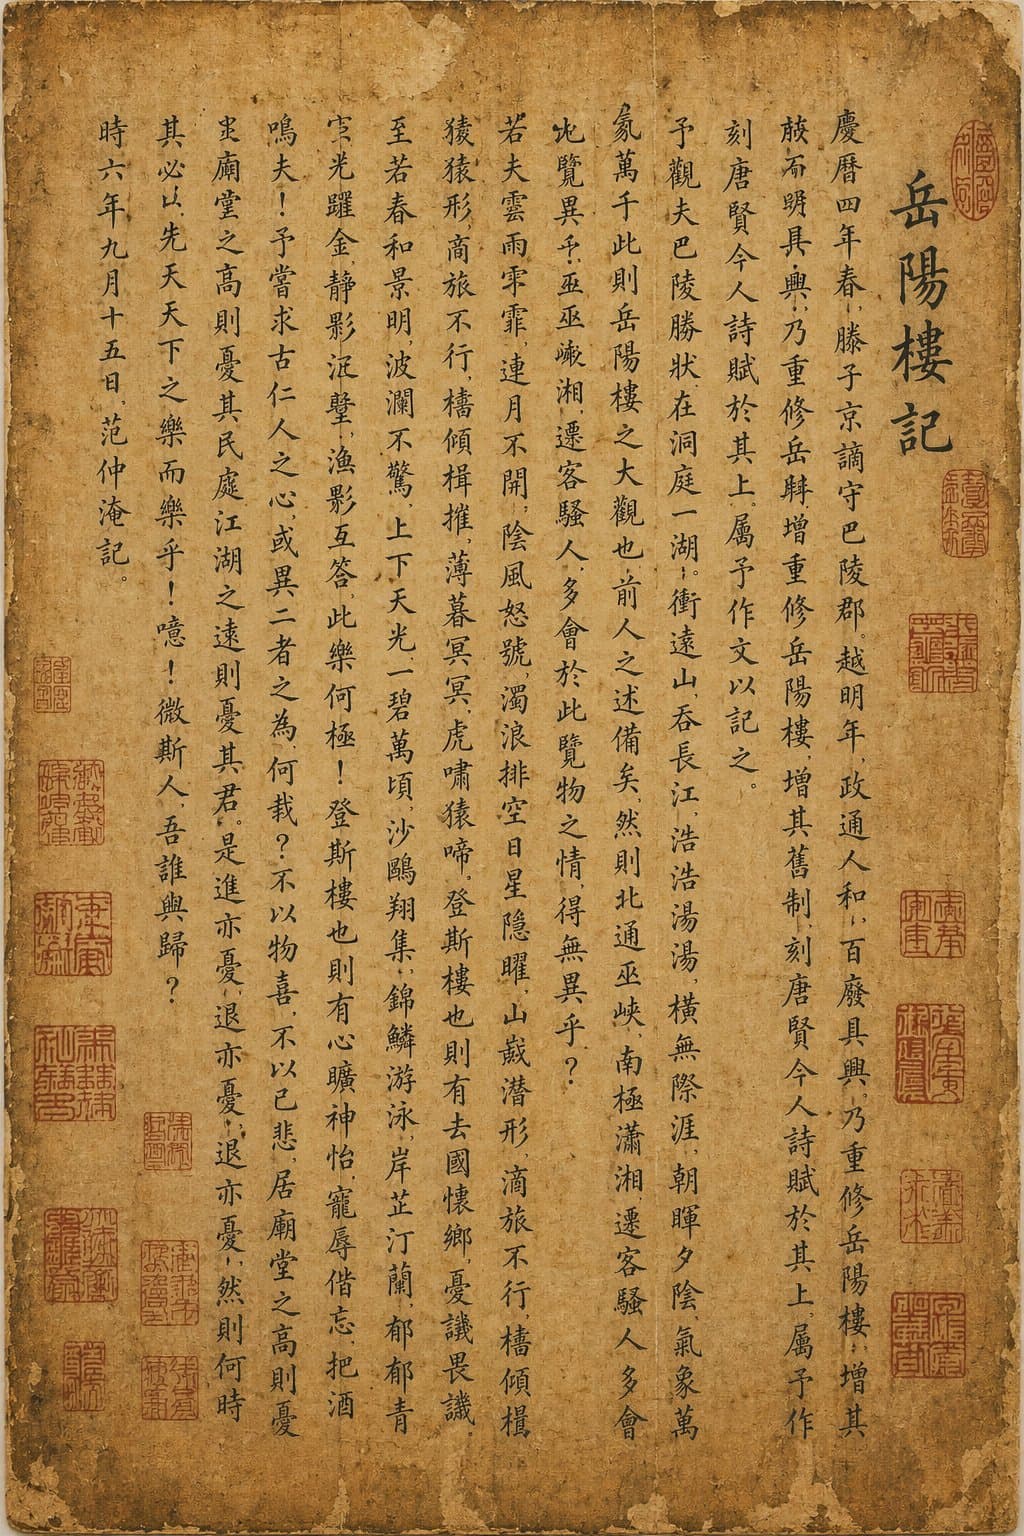 岳陽樓記
慶曆四年春，滕子京謫守巴陵郡。越明年，政通人和，百廢具興。乃重修岳陽樓，增其
明具興，乃重修岳 增重修岳陽樓，增其舊制，刻唐賢今人詩賦於其上，属予作
刻唐賢今人詩賦於其上。属予作文以記之。
予觀夫巴陵勝狀，在洞庭一湖。衝遠山，吞長江，浩浩湯湯，橫無際涯，朝暉夕陰，氣象萬
萬千此則岳陽樓之大觀也，前人之述備矣，然則北通巫峽，南極瀟湘，遷客騷人多會
覽異 巫 湘，遷客騷人，多會於此覽物之情，得無異乎？
若夫雲雨 霏，連月不開，陰風怒號，濁浪排空日星隐曜，山 潜形，滴旅不行，檣傾
猿形，商旅不行，檣傾楫摧，薄暮冥冥，虎嘯猿啼，登斯樓也則有去國懷鄉，憂譏畏譏
至若春和景明，波瀾不驚，上下天光，一碧萬頃，沙鷗翔集，錦鱗游泳，岸芷汀蘭，郁郁青
光躍金，靜影 ，漁影互答，此樂何極！登斯樓也則有心曠神怡，寵辱偕忘，把酒
鳴夫！予嘗求古仁人之心，或異二者之為，何 ？不以物喜，不以己悲，居廟堂之高則憂
廟堂之高則憂其民 江湖之遠則憂其君。是進亦憂，退亦憂，退亦憂，然則何時
其必 先天天下之樂而樂乎！噫！微斯人，吾誰與歸？
時六年九月十五日，范仲淹記。